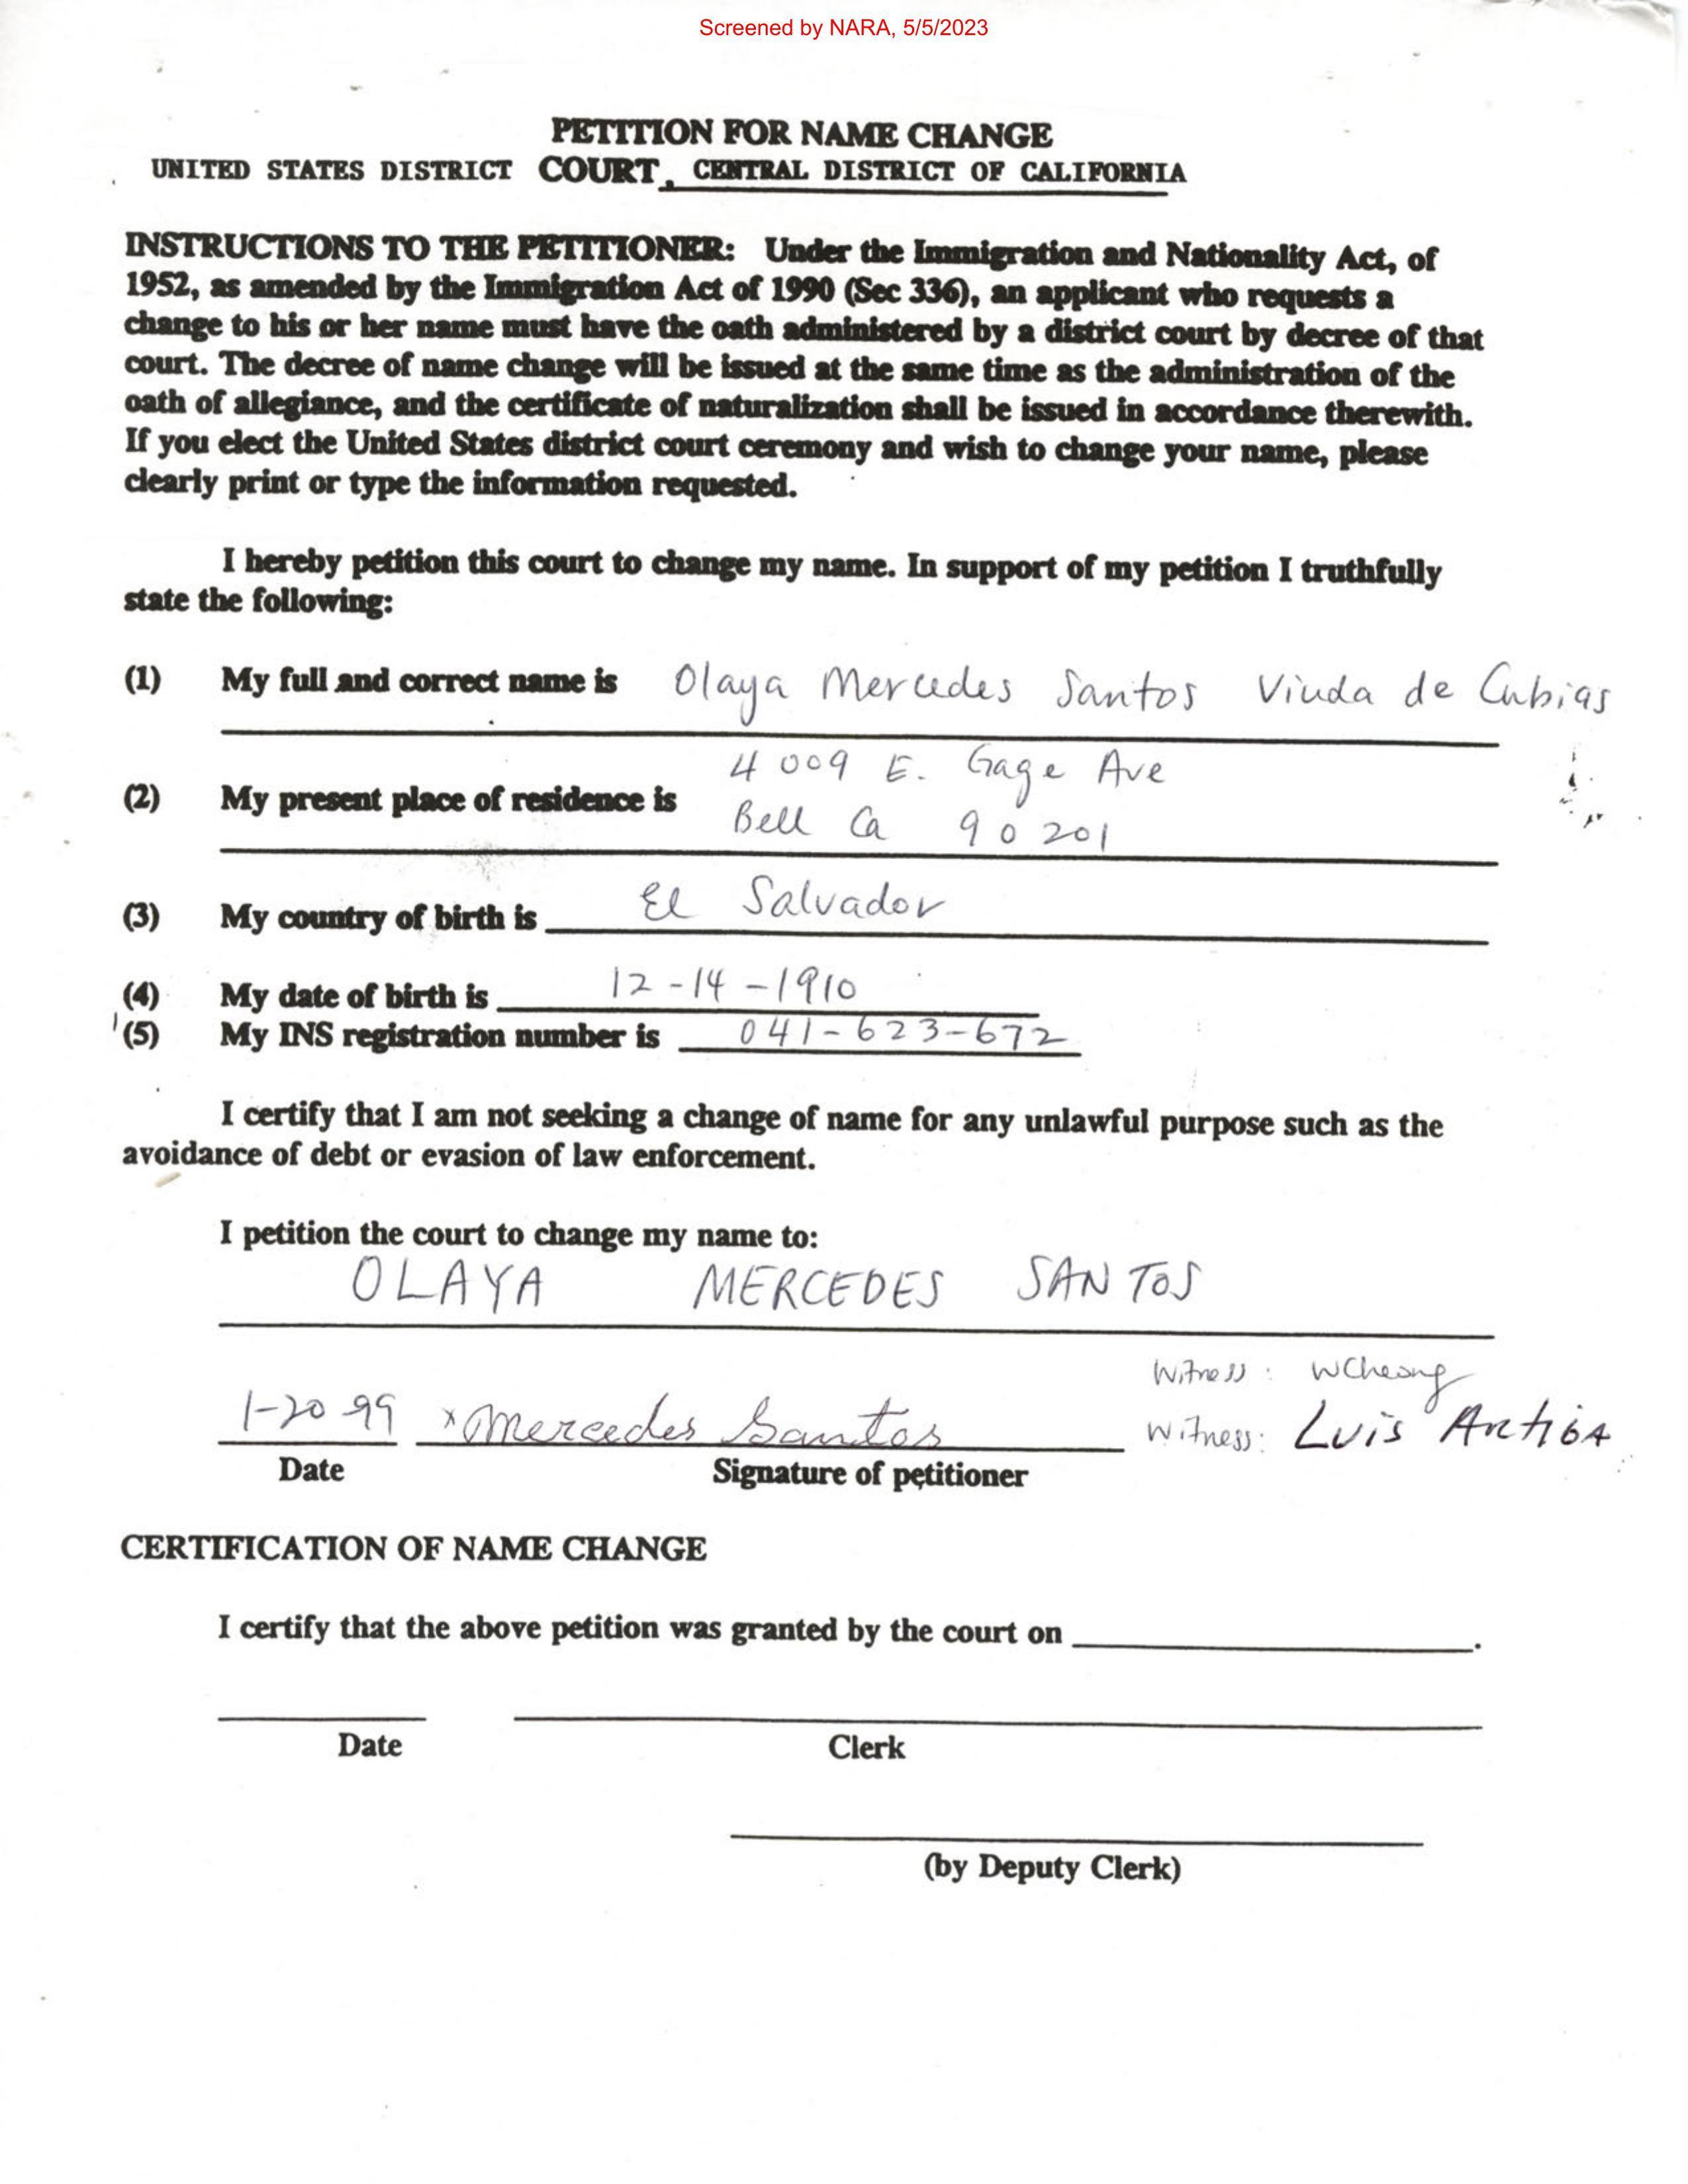 Screened by NARA, 5/5/2023
PETITION FOR NAME CHANGE
UNITED STATES DISTRICT COURT, CENTRAL DISTRICT OF CALIFORNIA
INSTRUCTIONS TO THE PETITIONER: Under the Immigration and Nationality Act, of
1952, as amended by the Immigration Act of 1990 (Sec 336), an applicant who requests a
change to his or her name must have the oath administered by a district court by decree of that
court. The decree of name change will be issued at the same time as the administration of the
oath of allegiance, and the certificate of naturalization shall be issued in accordance therewith.
If you elect the United States district court ceremony and wish to change your name, please
clearly print or type the information requested.
I hereby petition this court to change my name. In support of my petition I truthfully
state the following:
(1) My full and correct name is Olaya Mercedes Santos Viuda de Cubias
4009 E. Gage Ave
(2) My present place of residence is Bell Ca 90201
(3) My country of birth is El Salvador
(4) My date of birth is 12-14-1910
(5) My INS registration number is 041-623-672
I certify that I am not seeking a change of name for any unlawful purpose such as the
avoidance of debt or evasion of law enforcement.
I petition the court to change my name to:
OLAYA MERCEDES SANTOS
Witness: WCheong
1-20-99 x Mercedes Santos Witness: Luis
Date Signature of petitioner
CERTIFICATION OF NAME CHANGE
I certify that the above petition was granted by the court on .
Date Clerk
(by Deputy Clerk)